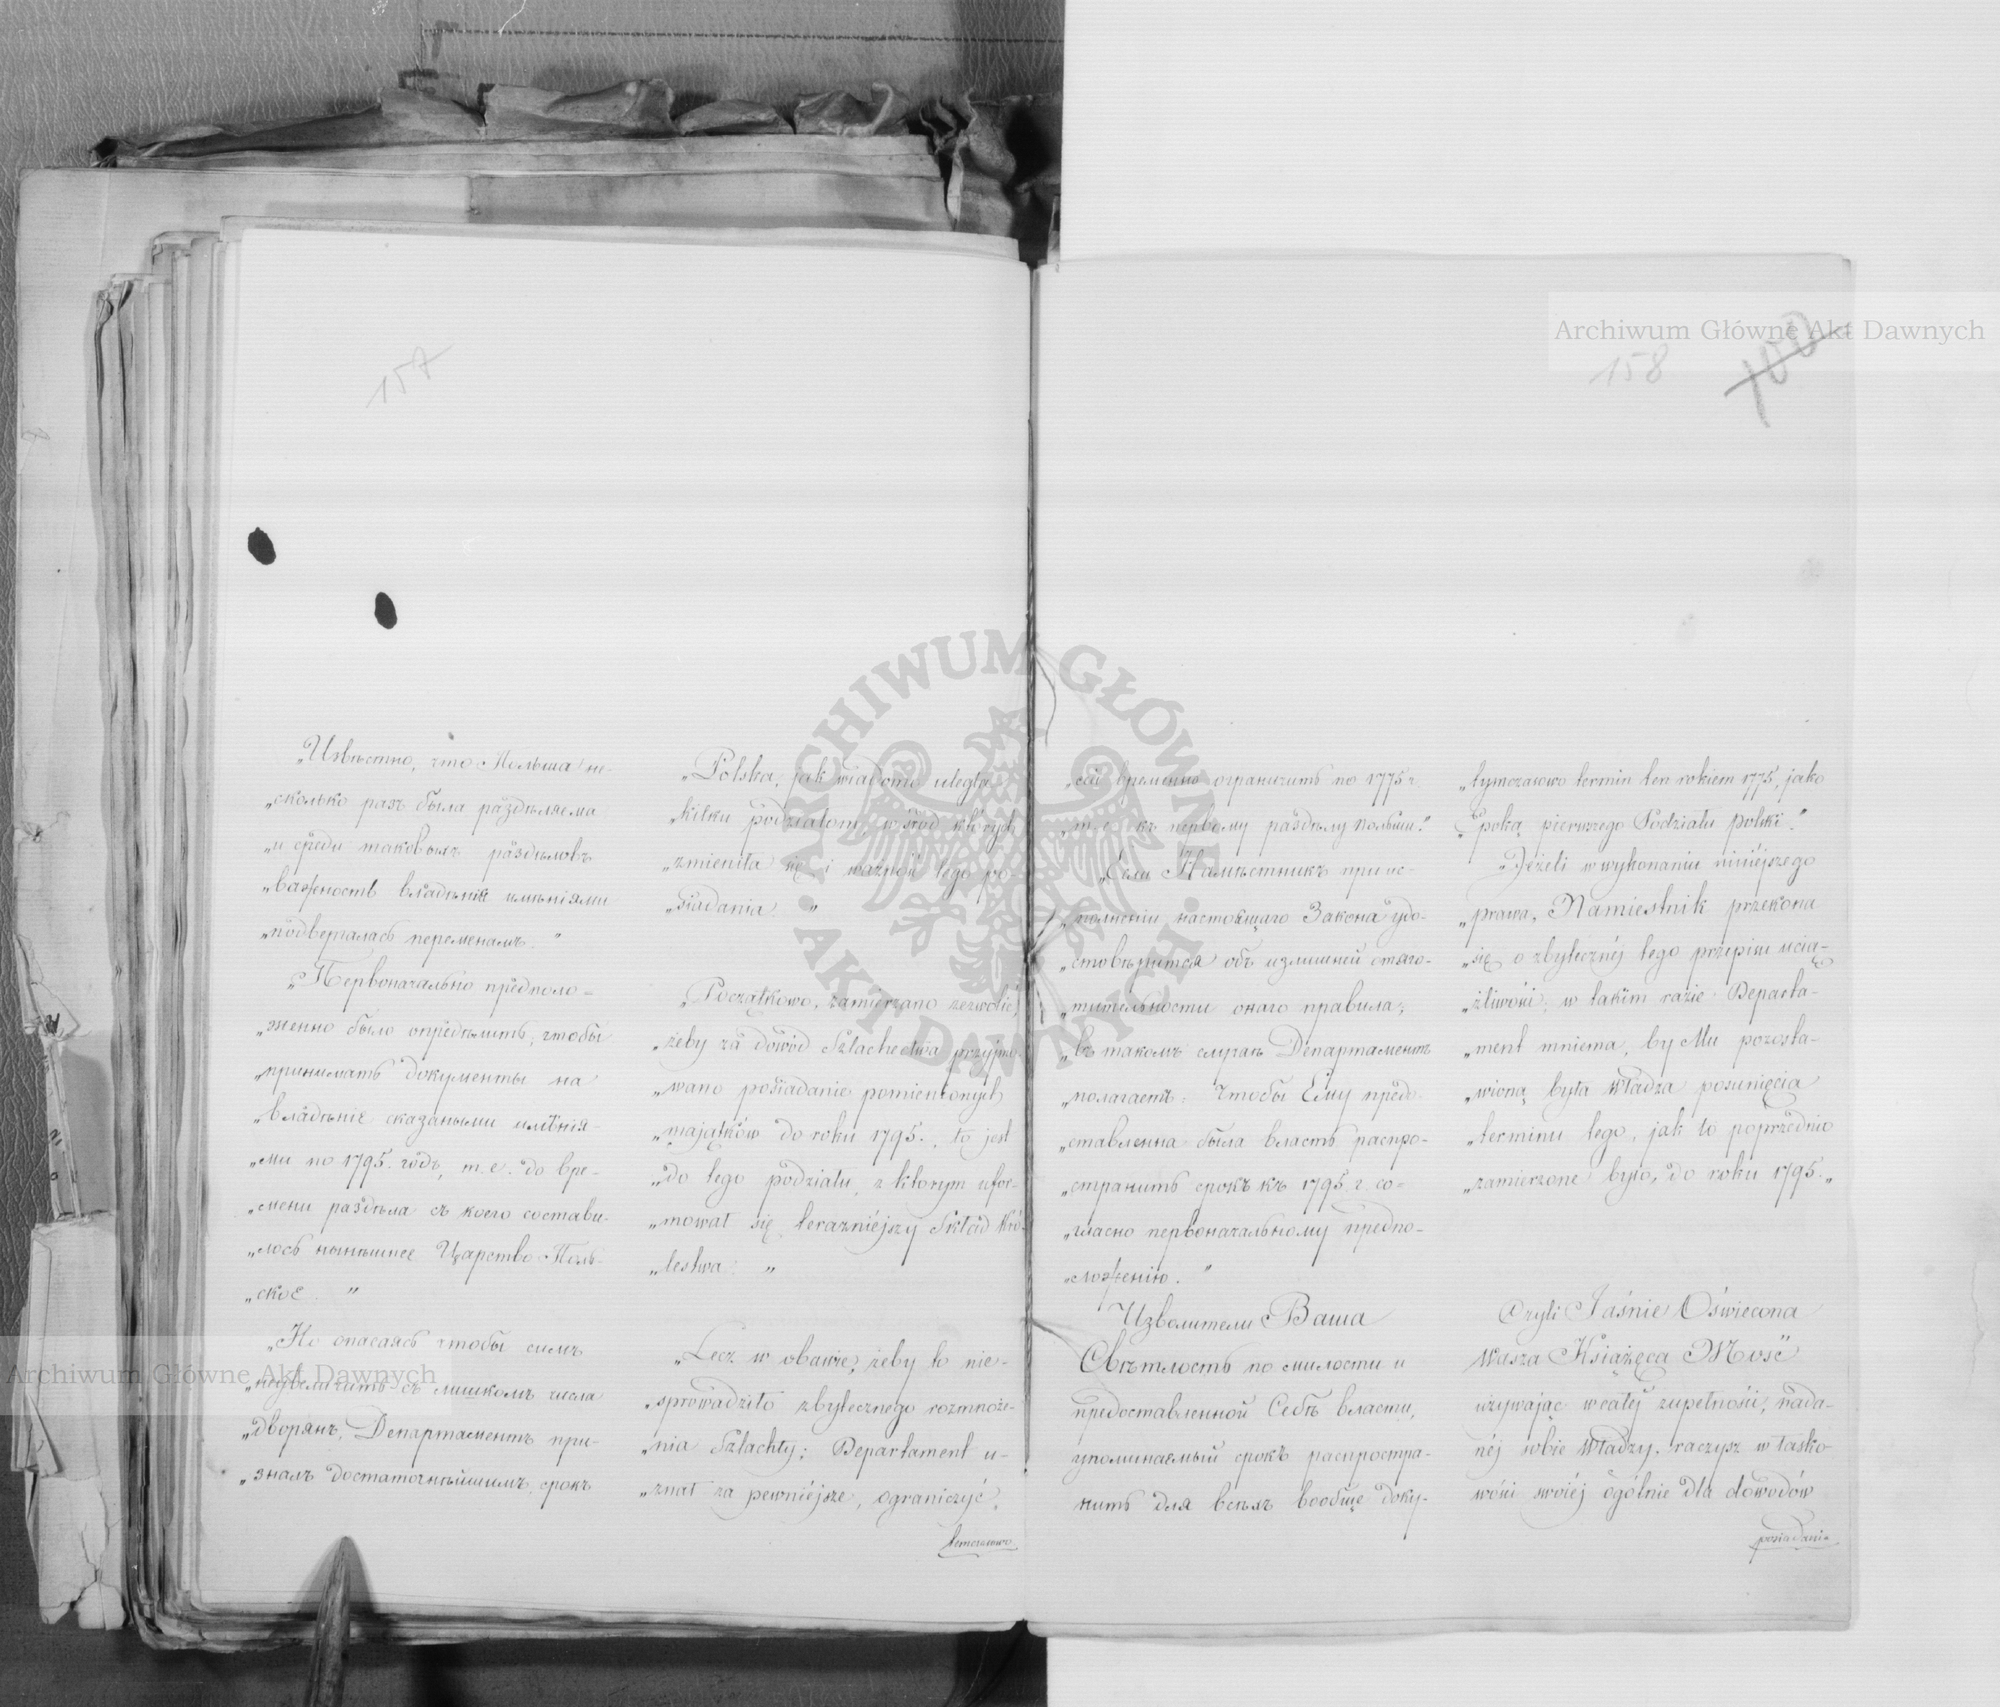 157
„Извѣстно, что Польша не-
„сколько разъ была раздѣляема
„и среди таковыхъ раздѣловъ
„важность владѣнія имѣніями
„подвергалась переменамъ. "
„Первоначально предполо=
„женно было опредѣлить, чтобы
„принимать документы на
„владѣніе сказаными имѣнія-
„ми по 1795. годъ, т. е. до вре-
„мени раздѣла съ коего состави-
„лось нынѣшнее Царство Поль-
„ское. "
„Но опасаясь чтобы симъ
„неувеличить съ лишкомъ числа
„дворянъ, Департаментъ при-
„зналъ достаточнѣйшимъ, срокъ
„Polska, jak wiadomo uległa
„kilku podziałom, w śród których
„zmieniła się i ważność tego po-
„siadania. "
„Początkowo, zamierzano zezwolić,
„żeby za dowód Szlachectwa przyjmo-
„wano posiadanie pomienionych
„majątków do roku 1795., to jest
„do tego podziału, z którym ufor-
„mował się terazniejszy Skład Kró-
„lestwa. "
„Lecz w obawie, żeby to nie-
„sprowadziło zbytecznego rozmnoże-
„nia Szlachty; Departament u-
„znał za pewniéjsze, ograniczyć,
tymczasowo
158
„сей временно ограничить по 1775 г.
„т. е. къ первому раздѣлу Польши."
„Если Намѣстникъ при ис-
„полненіи настоящаго Закона удо-
„стовѣрится объ излишней отяго-
„тительности онаго правила;
„въ такомъ случаѣ Департаментъ
„полагаетъ: чтобы Ему предо-
„ставленна была власть распро-
„странить срокъ къ 1795. г. со-
„гласно первоначальному предпо-
„ложенію. "
Изволители Ваша
Свѣтлость по милости и
предоставленной Себѣ власти,
упоминаемый срокъ распростра-
нить для всѣхъ вообще доку-
„tymczasowo termin ten rokiem 1775, jako
„Epoką pierwszego Podziału Polski."
„Jeżeli w wykonaniu niniéjszego
„prawa, Namiestnik przekona
„się o zbytecznéj tego przepisu ucią-
„żliwości; w takim razie Departa-
„ment mniema, by Mu pozosta-
„wioną była władza posunięcia
„terminu tego, jak to poprzednio
„zamierzone było, do roku 1795."
Czyli Jaśnie Oświecona
Wasza Książęca Mość
używając w całéj zupełności, nada-
néj sobie Władzy, raczysz w łasko-
wości swoiéj ogólnie dla dowodów
posiadania
Archiwum Główne Akt Dawnych
Archiwum Główne Akt Dawnych
ARCHIWUM GŁÓWNE
AKT DAWNYCH